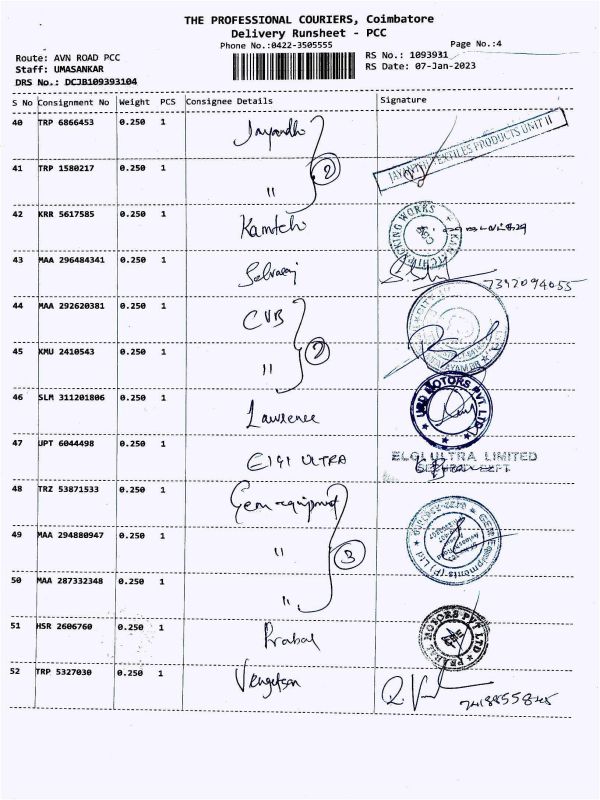 THE PROFESSIONAL COURIERS, Coimbatore
Delivery Runsheet - PCC
Phone No.:0422-3505555
Page No.:4
Route: AVN ROAD PCC
RS No.: 1093931
Staff: UMASANKAR
RS Date: 07-Jan-2023
DRS No.: DCJB109393104
S No Consignment No Weight PCS Consignee Details Signature
40 TRP 6866453 0.250 1
JAYANTHI TEXTILES PRODUCTS UNIT II
41 TRP 1580217 0.250 1 "
2
42 KRR 5617585 0.250 1
43 MAA 296484341 0.250 1 Selvaraj
7392094055
44 MAA 292620381 0.250 1 CVB
45 KMU 2410543 0.250 1 "
2
46 SLM 311201806 0.250 1 Lawrence
USD MOTORS PVT. LTD
47 UPT 6044498 0.250 1 ELGI ULTRA
ELGI ULTRA LIMITED
SECURITY DEPT
48 TRZ 53871533 0.250 1 Gem equipment
GEM Equipments (P) Ltd
49 MAA 294880947 0.250 1 "
3
50 MAA 287332348 0.250 1 "
51 HSR 2606760 0.250 1 Prabal
PRABAL MOTORS PVT LTD
52 TRP 5327030 0.250 1